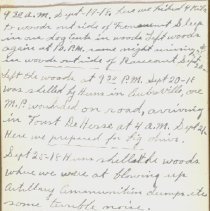 9 P.M. Sept 17-18 here we hiked 9 Kilo
to woods outside of Fremont Sleep
in our dog tents in woods left woods
again at 10 P.M. same night arriving
in woods outside of Racecourt Sept
Left the woods at 9 P.M. Sept 20-18
was shelled by Huns in Aubreville, one
M.P. wounded on road, arriving
in Trist De Herse at 4 A.M. Sept
Here we prepared for big drive.
Sept 25-18 Huns shelled the woods
where we were at blowing up
Artillery Ammunition dumps, its
some terrible noise.